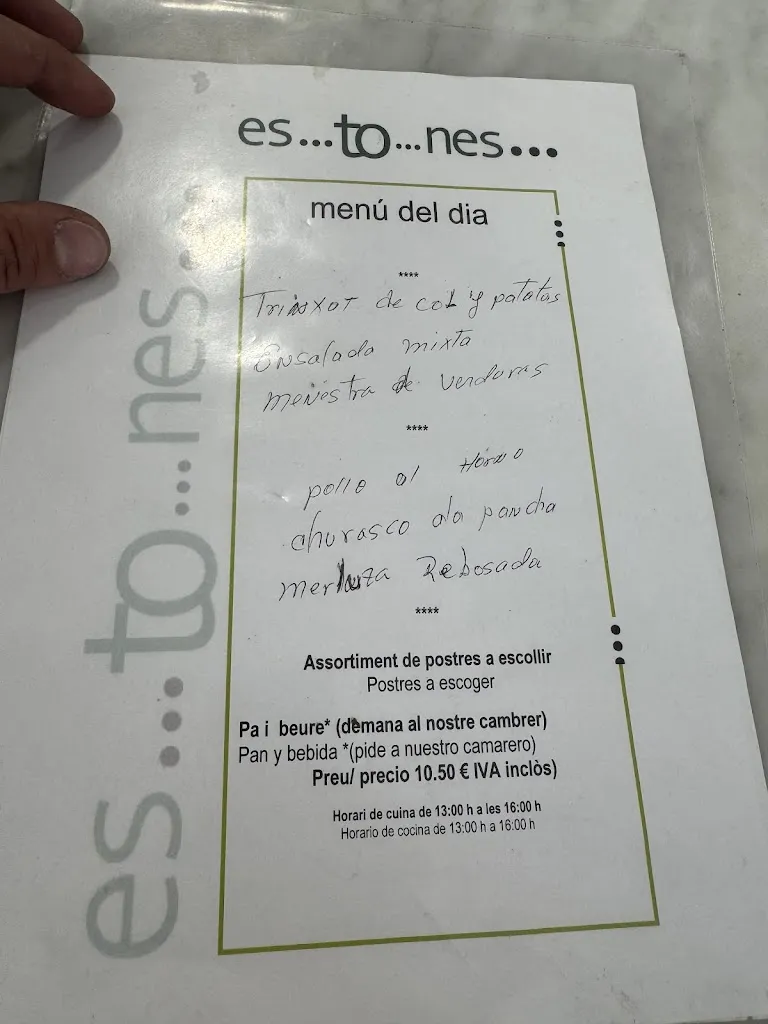 es...to...nes...
menú del dia
****
Trinxat de col y patatas
Ensalada mixta
menestra de verduras
****
pollo al Horno
churasco ala pancha
merluza Rebosada
****
Assortiment de postres a escollir
Postres a escoger
Pa i beure* (demana al nostre cambrer)
Pan y bebida *(pide a nuestro camarero)
Preu/ precio 10.50 € IVA inclòs)
Horari de cuina de 13:00 h a les 16:00 h
Horario de cocina de 13:00 h a 16:00 h
es...to...nes...